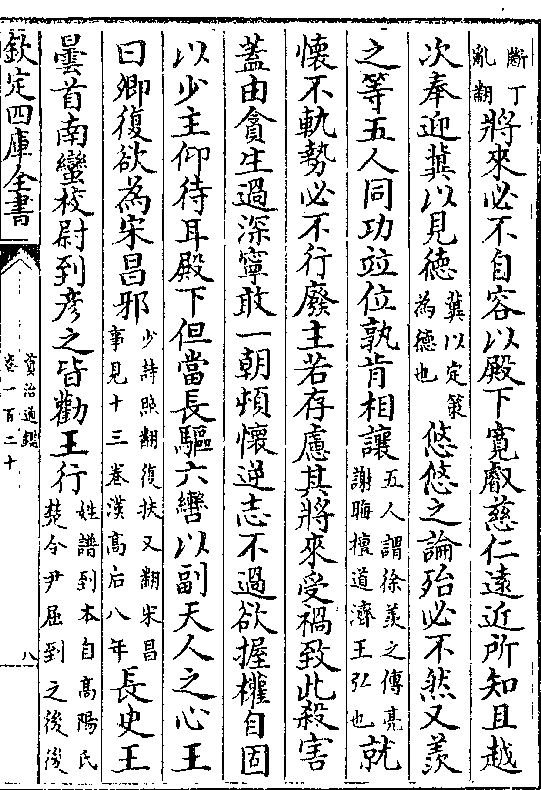 斷丁亂翻將來必不自容以殿下寬叡慈仁遠近所知且越
次奉迎冀以見德冀以定策為德也悠悠之論殆必不然又羨
之等五人同功竝位孰肯相讓五人謂徐羨之傅亮謝晦檀道濟王弘也就
懷不軌勢必不行廢主若存慮其將來受禍致此殺害
蓋由貪生過深寧敢一朝頓懷逆志不過欲握權自固
以少主仰待耳殿下但當長驅六轡以副天人之心王
曰卿復欲為宋昌邪少詩照翻復扶又翻宋昌事見十三卷漢高后八年長史王
曇首南蠻校尉到彥之皆勸王行姓譜到本自高陽氏楚令尹屈到之後後
欽定四庫全書
資治通鑑
卷一百二十
八